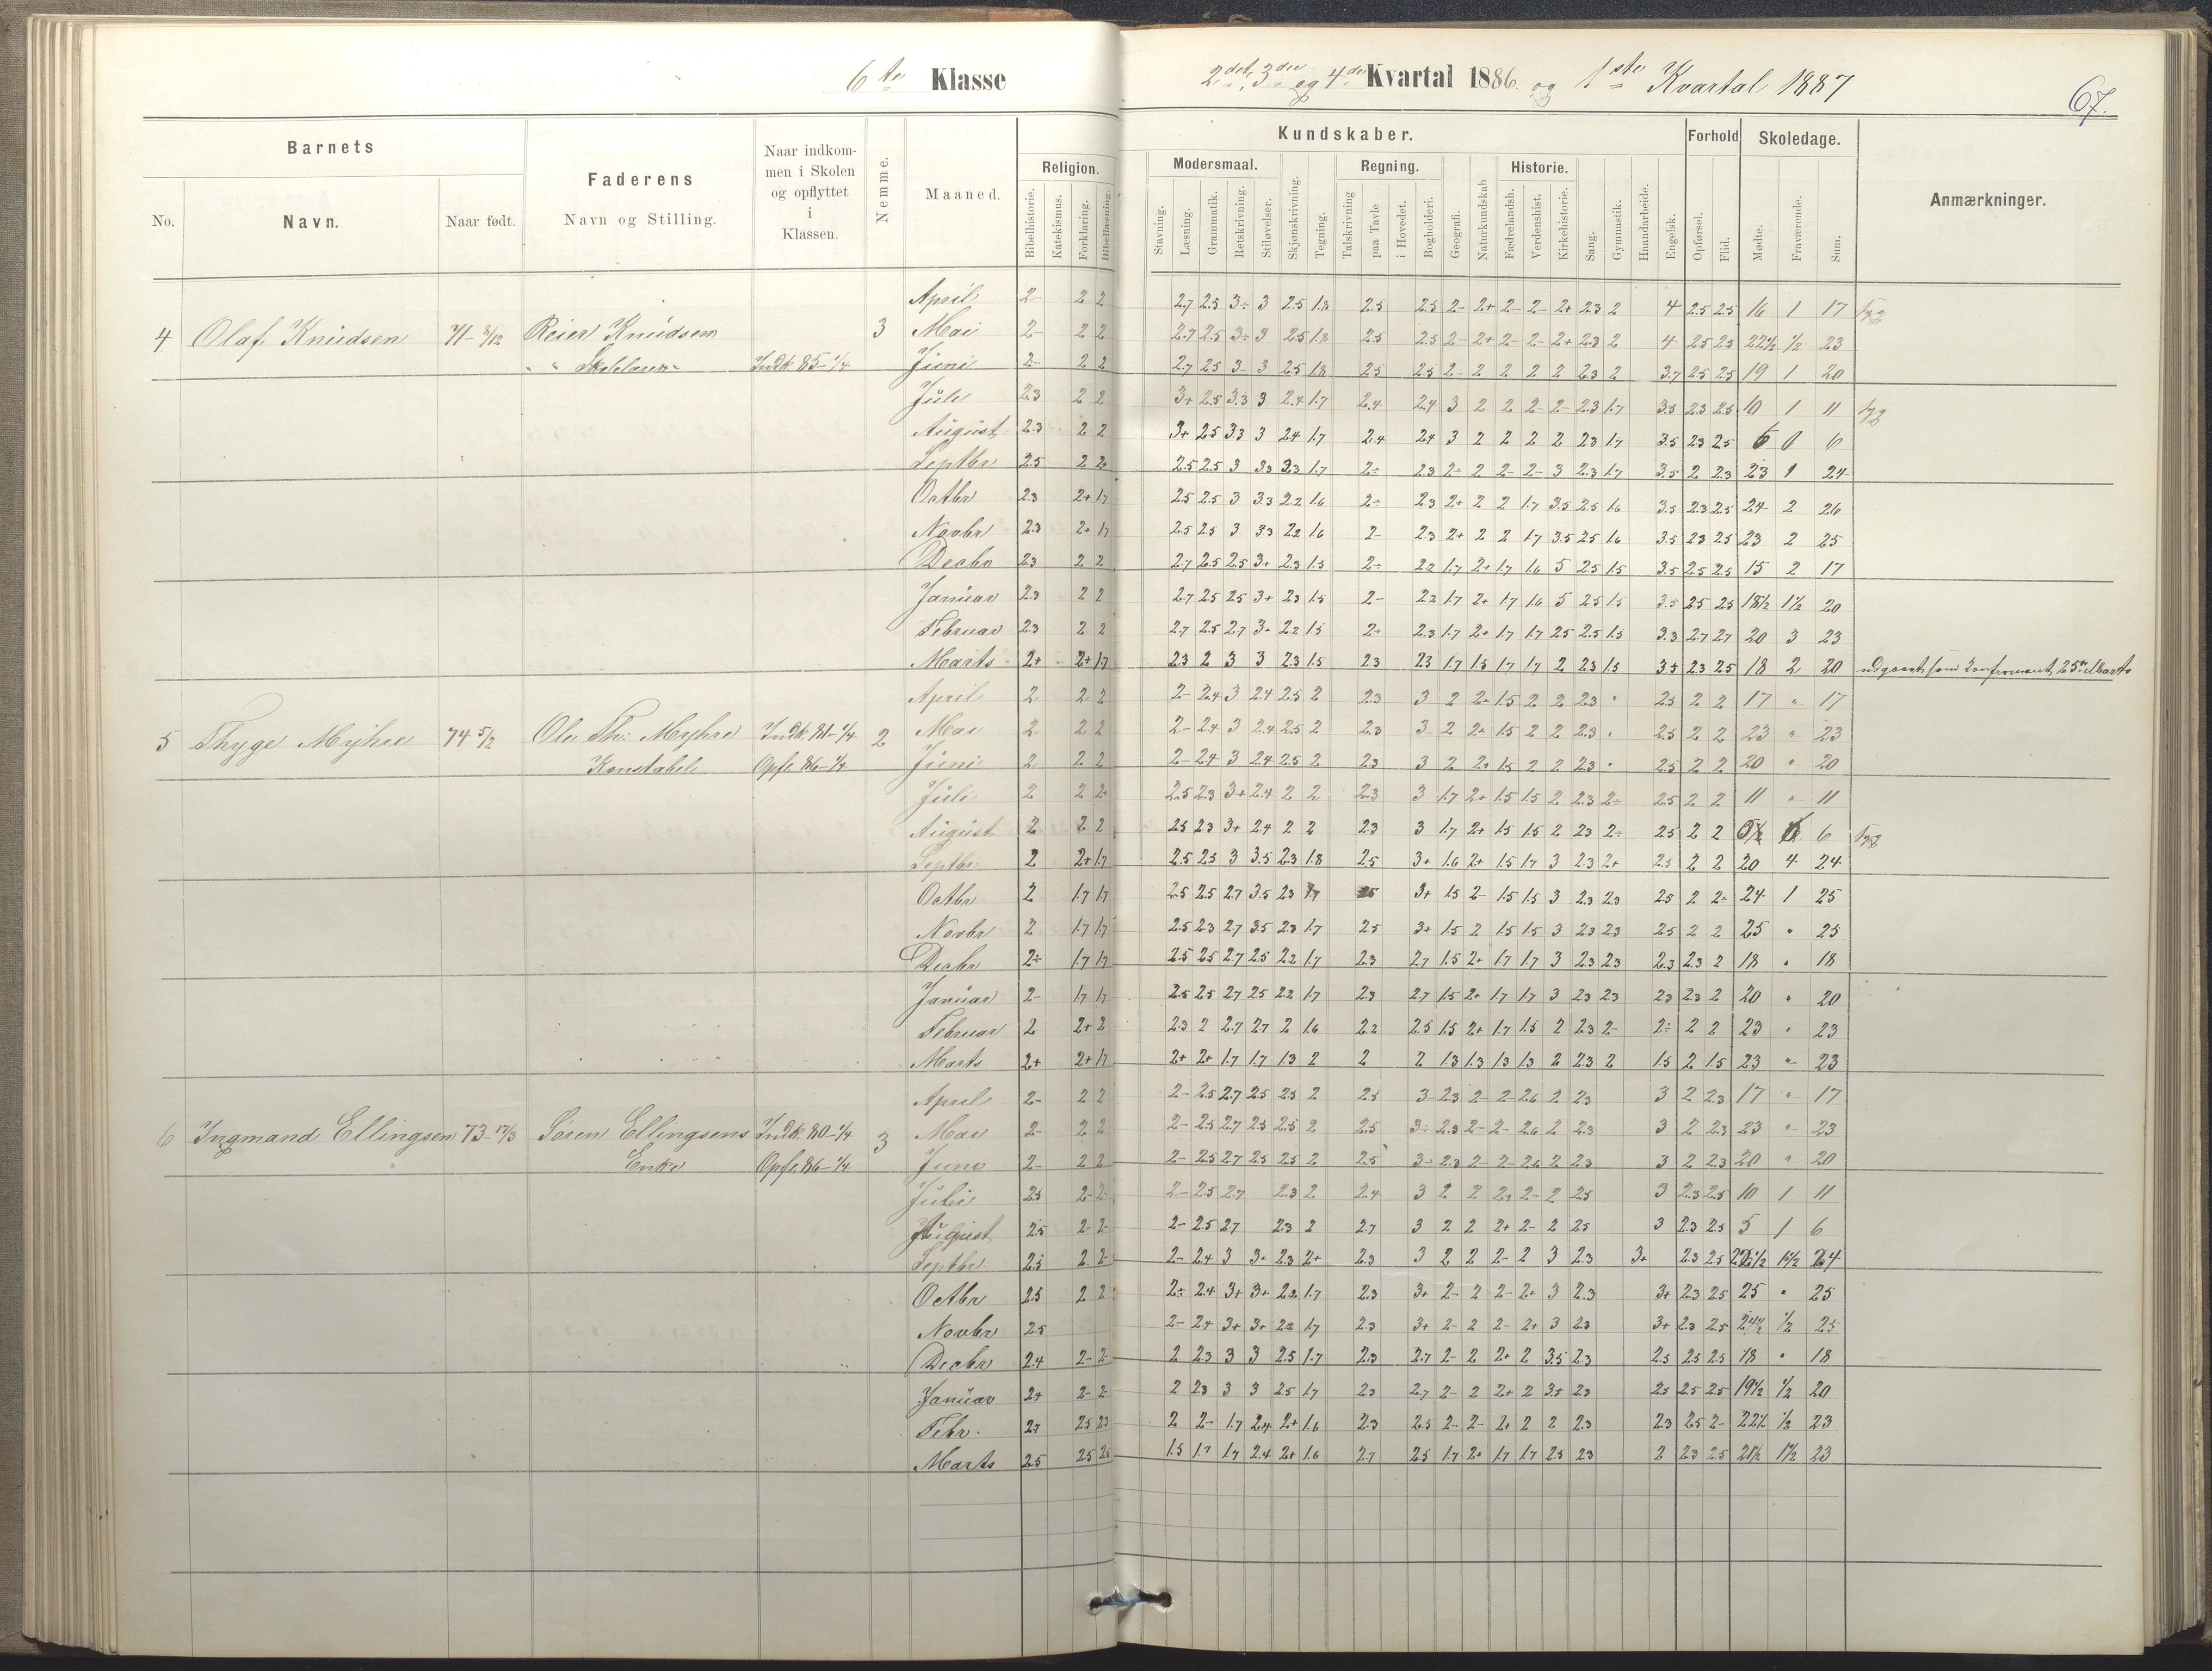 6te Klasse
2det, 3die og 4de Kvartal 1886 og 1ste Kvartal 1887
67.
Barnets
No. Navn. Naar født.
Faderens
Navn og Stilling.
Naar indkom-
men i Skolen
og opflyttet
i
Klassen.
Nemme.
Maaned.
Religion.
Bibelhistorie. Katekismus. Forklaring. Bibellæsning.
Kundskaber.
Modersmaal.
Stavning. Læsning. Grammatik. Retskrivning. Stiløvelser. Skjønskrivning. Tegning.
Regning.
Talskrivning paa Tavle i Hovedet. Bogholderi. Geografi. Naturkundskab
Historie.
Fædrelandsh. Verdenshist. Kirkehistorie. Sang. Gymnastik. Haandarbeide. Engelsk.
Forhold
Opførsel. Flid.
Skoledage.
Mødte. Fraværende. Sum.
Anmærkninger.
April 2- 2 2 2.7 2.5 3÷ 3 2.5 1.8 2.5 2.5 2- 2+ 2- 2- 2+ 2.3 2 4 2.5 2.5 16 1 17
4 Olaf Knudsen 71- 8/12 Reier Knudsen 3 Mai 2- 2 2 2.7 2.5 3÷ 3 2.5 1.8 2.5 2.5 2- 2+ 2- 2- 2+ 2.3 2 4 2.5 2.5 22½ ½ 23
Indk. 85-1/4 Juni 2- 2 2 2.7 2.5 3 3 2.5 1.8 2.5 2.5 2- 2 2 2 2 2.3 2 3.7 2.5 2.5 19 1 20
Juli 2.3 2 2 3+ 2.5 3.3 3 2.4 1.7 2.4 2.4 3 2 2 2- 2- 2.3 1.7 3.5 2.3 2.5 10 1 11
August 2.3 2 2 3+ 2.5 3.3 3 2.4 1.7 2.4 2.4 3 2 2 2 2 2.3 1.7 3.5 2.3 2.5 6 0 6
Septbr 2.5 2 2 2.5 2.5 3 3.3 2.3 1.7 2÷ 2.3 2- 2 2- 2- 3 2.3 1.7 3.5 2 2.3 23 1 24
Octbr 2.3 2+ 1.7 2.5 2.5 3 3.3 2.2 1.6 2÷ 2.3 2+ 2 2 1.7 3.5 2.5 1.6 3.5 2.3 2.5 24 2 26
Novbr 2.3 2+ 1.7 2.5 2.5 3 3.3 2.2 1.6 2- 2.3 2+ 2 2 1.7 3.5 2.5 1.6 3.5 2.3 2.5 23 2 25
Decbr 2.3 2 2 2.7 2.5 2.5 3+ 2.3 1.5 2÷ 2.2 1.7 2+ 1.7 1.6 5 2.5 1.5 3.5 2.5 2.5 15 2 17
Januar 2.3 2 2 2.7 2.5 2.5 3+ 2.3 1.5 2- 2.2 1.7 2+ 1.7 1.6 5 2.5 1.5 3.5 2.5 2.5 18½ 1½ 20
Februar 2.3 2 2 2.7 2.5 2.7 3- 2.2 1.5 2+ 2.3 1.7 2+ 1.7 1.7 2.5 2.5 1.5 3.3 2.7 2.7 20 3 23
Marts 2+ 2+ 1.7 2.3 2 3 3 2.3 1.5 2.3 2.3 1.7 1.5 1.7 1.7 2 2.3 1.5 3.5 2.3 2.5 18 2 20 udgaaet som Konfirmant 25de Marts
April 2 2 2 2- 2.4 3 2.4 2.5 2 2.3 3 2 2+ 1.5 2 2 2.3 " 2.5 2 2 17 " 17
5 Thyge Myhre 74 5/2 Ole Th. Myhre Indk. 81-1/4 2 Mai 2 2 2 2- 2.4 3 2.4 2.5 2 2.3 3 2 2+ 1.5 2 2 2.3 " 2.5 2 2 23 " 23
Konstabel Opfl. 86-1/4 Juni 2 2 2 2- 2.4 3 2.4 2.5 2 2.3 3 2 2+ 1.5 2 2 2.3 " 2.5 2 2 20 " 20
Juli 2 2 2 2.5 2.3 3+ 2.4 2 2 2.3 3 1.7 2+ 1.5 1.5 2 2.3 2÷ 2.5 2 2 11 " 11
August 2 2 2 2.5 2.3 3+ 2.4 2 2 2.3 3 1.7 2+ 1.5 1.5 2 2.3 2÷ 2.5 2 2 5½ 6
Septbr 2 2+ 1.7 2.5 2.5 3 3.5 2.3 1.8 2.5 3+ 1.6 2+ 1.5 1.7 3 2.3 2+ 2.5 2 2 20 4 24
Octbr 2 1.7 1.7 2.5 2.5 2.7 3.5 2.3 1.7 2.5 3+ 1.5 2- 1.5 1.5 3 2.3 2.3 2.5 2 2- 24 1 25
Novbr 2 1.7 1.7 2.5 2.3 2.7 3.5 2.3 1.7 2.5 3+ 1.5 2 1.5 1.5 3 2.3 2.3 2.5 2 2 25 " 25
Decbr 2÷ 1.7 1.7 2.5 2.5 2.7 2.5 2.2 1.7 2.3 2.7 1.5 2+ 1.7 1.7 3 2.3 2.3 2.3 2.3 2 18 " 18
Januar 2- 1.7 1.7 2.5 2.5 2.7 2.5 2.2 1.7 2.3 2.7 1.5 2+ 1.7 1.7 3 2.3 2.3 2.3 2.3 2 20 " 20
Februar 2 2+ 2 2.3 2 2.7 2.7 2 1.6 2.2 2.5 1.5 2+ 1.7 1.5 2 2.3 2- 2÷ 2 2 23 " 23
Marts 2+ 2+ 1.7 2+ 2+ 1.7 1.7 1.3 2 2 2 1.3 1.3 1.3 1.3 2 2.3 2 1.5 2 1.5 23 " 23
April 2- 2 2 2- 2.5 2.7 2.5 2.5 2 2.5 3 2.3 2- 2- 2.6 2 2.3 3 2 2.3 17 " 17
6 Ingmand Ellingsen 73-17/3 Søren Ellingsens Indk. 80-1/4 3 Mai 2- 2 2 2- 2.5 2.7 2.5 2.5 2 2.5 3÷ 2.3 2- 2- 2.6 2 2.3 3 2 2.3 23 " 23
Enke Opfl. 86-1/4 Juni 2- 2 2 2- 2.5 2.7 2.5 2.5 2 2.5 3÷ 2.3 2- 2- 2.6 2 2.3 3 2 2.3 20 " 20
Juli 2.5 2- 2- 2- 2.5 2.7 2.3 2 2.4 3 2 2 2+ 2- 2 2.5 3 2.3 2.5 10 1 11
August 2.5 2- 2- 2- 2.5 2.7 2.3 2 2.7 3 2 2 2+ 2- 2 2.5 3 2.3 2.5 5 1 6
Septbr 2.5 2 2- 2- 2.4 3 3+ 2.3 2+ 2.3 3 2 2 2- 2 3 2.3 3+ 2.3 2.5 22½ 1½ 24
Octbr 2.5 2 2 2÷ 2.4 3+ 3+ 2.2 1.7 2.3 3+ 2- 2 2- 2+ 3 2.3 3+ 2.3 2.5 25 " 25
Novbr 2.5 2- 2.4 3+ 3+ 2.2 1.7 2.3 3+ 2- 2 2- 2+ 3 2.3 3+ 2.3 2.5 24½ ½ 25
Decbr 2.4 2- 2- 2 2.3 3 3 2.5 1.7 2.3 2.7 2- 2 2+ 2 3.5 2.3 2.5 2.5 2.5 18 " 18
Januar 2.4 2- 2- 2 2.3 3 3 2.5 1.7 2.3 2.7 2- 2 2+ 2 3.5 2.3 2.5 2.5 2.5 19½ ½ 20
Febr. 2.7 2.5 2.3 2 2- 1.7 2.4 2+ 1.6 2.3 2.5 2- 2- 2+ 2 2 2.3 2.3 2.5 2- 22½ ½ 23
Marts 2.5 2.5 2.5 1.5 1.7 1.7 2.4 2+ 1.6 2.7 2.5 1.7 2+ 1.7 1.7 2.5 2.3 2 2.3 2.5 21½ 1½ 23